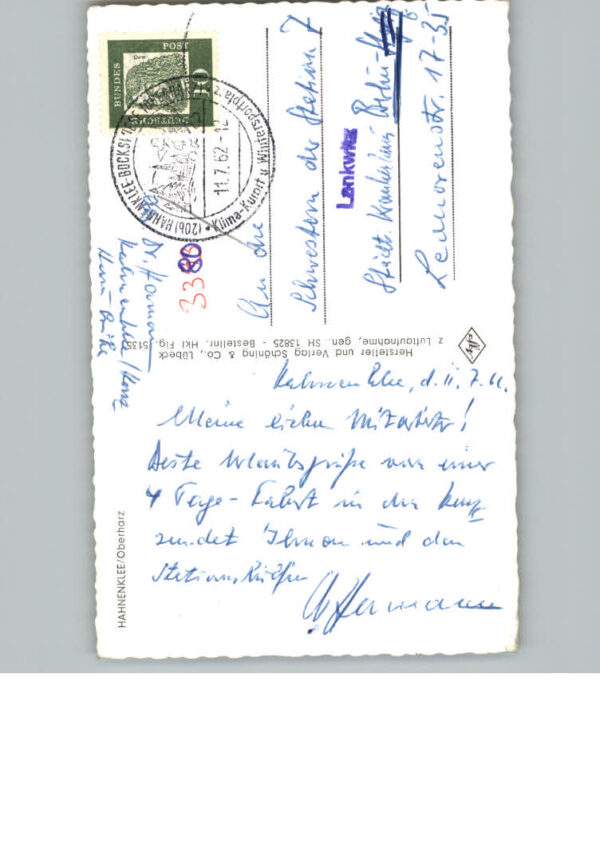 Hahnenklee, d. 11.7.62.
Meine lieben Mitarbeiter!
Beste Urlaubsgrüße von einer
4 Tage-Fahrt in den Harz
sendet Ihnen und den
Hermann
An die
Schwestern der Station 7
Lankwitz
Städt. Krankenhaus Berlin-
Leonorenstr. 17-35
Dr. Hermann
Hahnenklee/Harz
3380
DEUTSCHE
BUNDES
POST
10
(20b) HAHNENKLEE-BOCKSWIESE
Klima-Kurort u. Wintersportplatz
11.7.62-12
Hersteller und Verlag Schöning & Co., Lübeck
z Luftaufnahme, gen. SH 13825 - Bestellnr. Hkl Fig. 5135
HAHNENKLEE/Oberharz